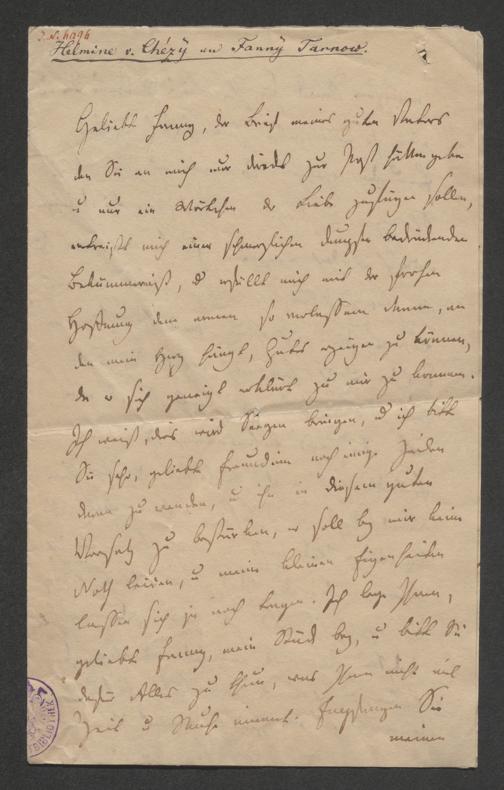 Helmine v. Chézÿ an Fannÿ Tarnow.
Geliebte Fanny, der Brief meines guten Vaters
den Sie an mich nur direkt zur Post hätten geben
u nur ein Wörtchen der Liebe zufügen sollen,
entreißt mich einer schmerzlichen bedrückenden
Bekümmerniß, u erfüllt mich mit der frohen
Hoffnung dem armen so verlassenen Manne, an
den mein Herz hängt, Gutes erzeigen zu können,
da er sich geneigt erklärt zu mir zu kommen.
Ich weiß, dies wird Segen bringen, u ich bitte
Sie sehr, geliebte Freundinn noch einige Zeilen
daran zu wenden, u ihn in diesem guten
Vorsatz zu bestärken, er soll bey mir keine
Noth leiden, u meine kleinen Eigenheiten
lassen sich ja noch tragen. Ich lege Ihnen,
geliebte Fanny, mein bey, u bitte Sie
Alles zu thun, was Ihnen nicht viel
Zeit u Mühe nimmt. Empfangen Sie
meinen
BIBLIOTHEK